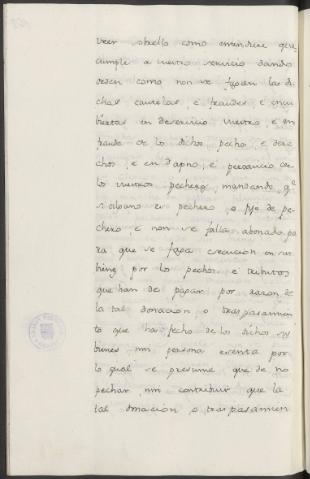 veer sobrello como entendiere que
cumple a vuestro servicio dando
orden como non se fagan las di-
chas cautelas, e fraudes, e encu-
biertas en deservicio vuestro, e en
fraude de los dichos pecho, e dere
chos, e en dapno, e perjuicio de
los vuestros pecheros, mandando, q.e
si alguno es pechero, o fijo de pe-
chero, e non se falla abonado pa
ra que se faga execucion en sus
bienes por los pechos e tributos
que han de pagar por razon de
la tal donacion o traspasamien
to que ha fecho de los dichos sus
bienes en persona esenta por
lo qual se presume que de no
pechar, nin contribuir que la
tal donacion o traspasamien